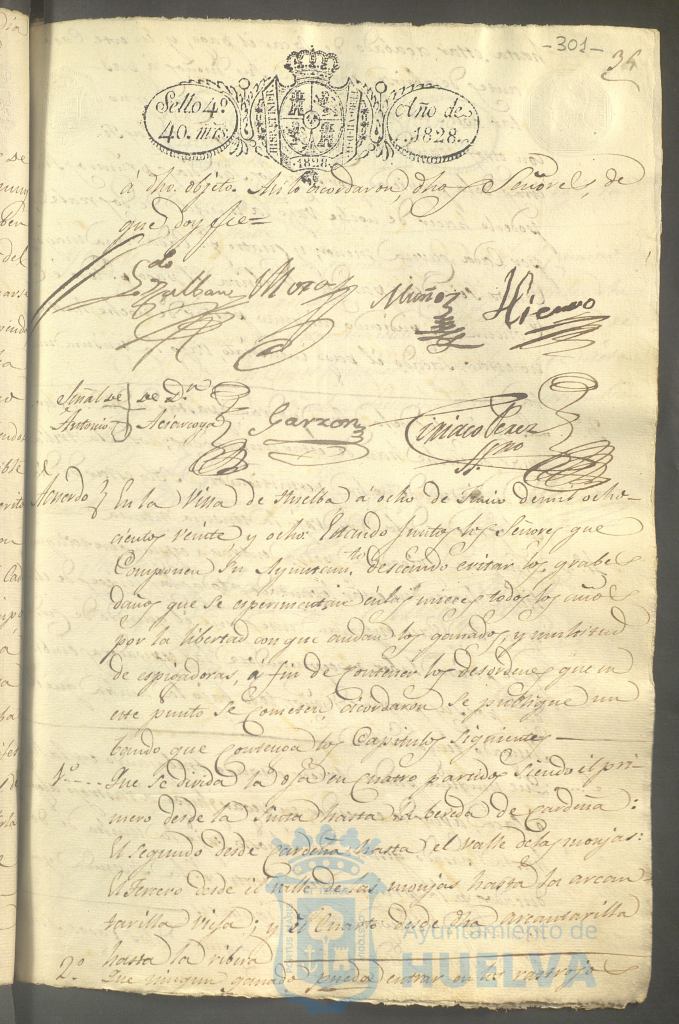 -301-
36
Sello 4º
40. mrs.
Año de
1828.
HISP. ET IND. R
1828
á dho. objeto. Asi lo acordaron dhos Señores, de
que doy fee=
Ldo
Mora
Muñoz
Hierro
Señal de de Dn
Antonio
Garzon
Ciriaco Perez
Ssno
Acuerdo
En la Villa de Huelba á ocho de Junio de mil ocho-
cientos veinte y ocho: Estando juntos los Señores que
componen su Ayuntamto deseando evitar los grabes
daños que se esperimentan en las mieses todos los años
por la libertad con que andan los ganados, y multitud
de espigadoras, á fin de contener los desordenes que en
este punto se cometen, acordaron se publique un
bando que contenga los Capitulos siguientes-
1º.... Que se divida la oja en cuatro partidos siendo el pri-
mero desde la hasta la bereda de Cardeña:
El segundo desde Cardeña hasta el valle de las monjas:
El Tercero desde el valle de las monjas hasta la alcan
tarilla Vieja; y el Cuarto desde dha Arcantarilla
hasta la ribera
2º. Que ningun ganado pueda entrar en los rastrojos
Ayuntamiento de
HUELVA